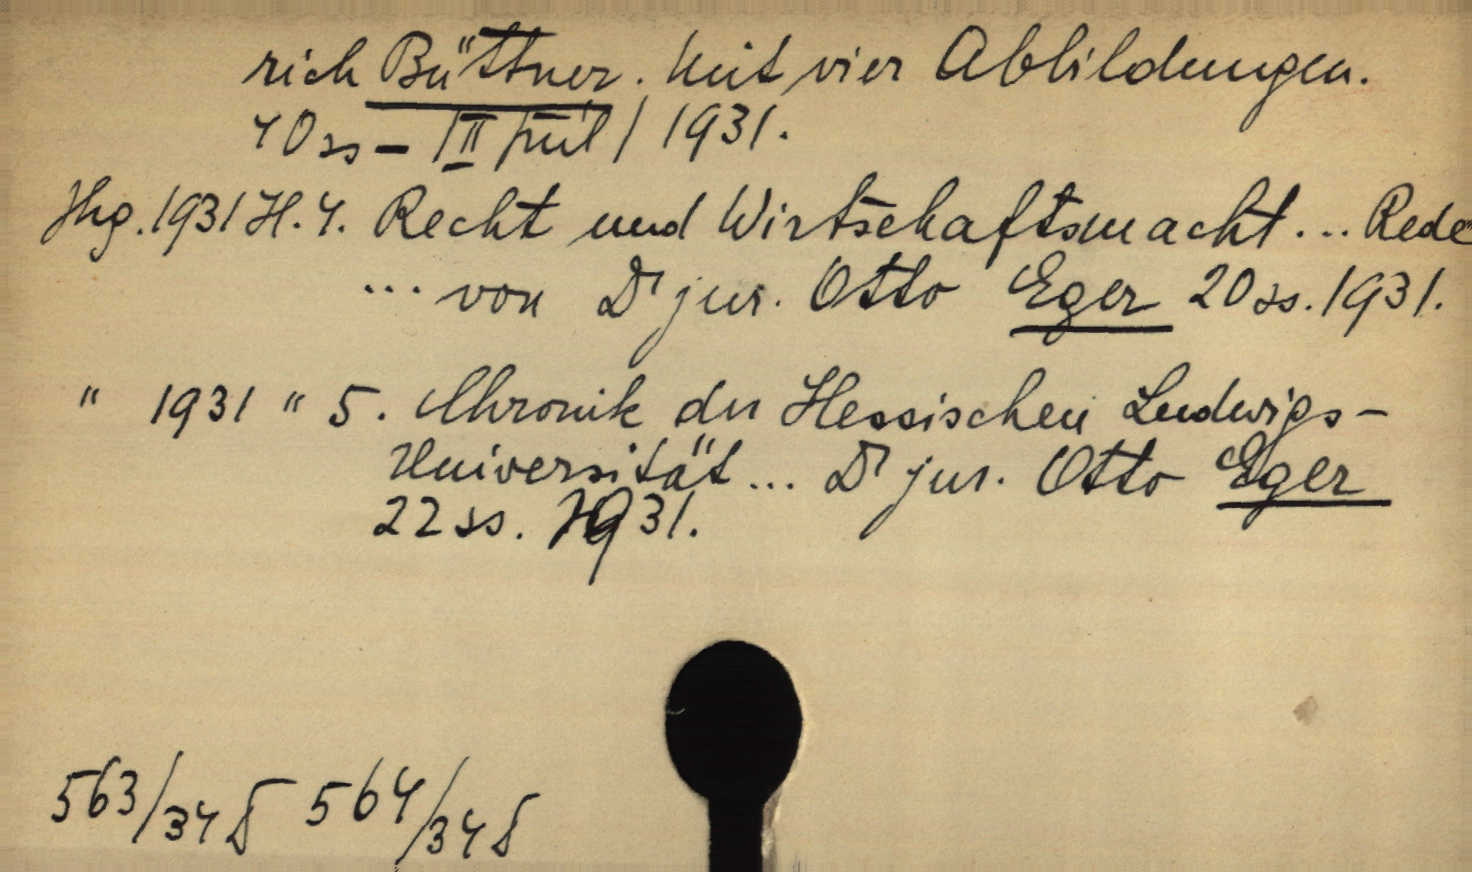 rich Büttner. Mit vier Abbildungen.
40 ss – /II tül/ 1931.
Jhg. 1931 H. 4. Recht und Wirtschaftsmacht ... Rede
... von Dr jur. Otto Eger 20 ss. 1931.
" 1931 " 5. Chronik der Hessischen Ludwigs-
Universität ... Dr jur. Otto Eger
22 ss. 1931.
563/34 δ 564/34 δ